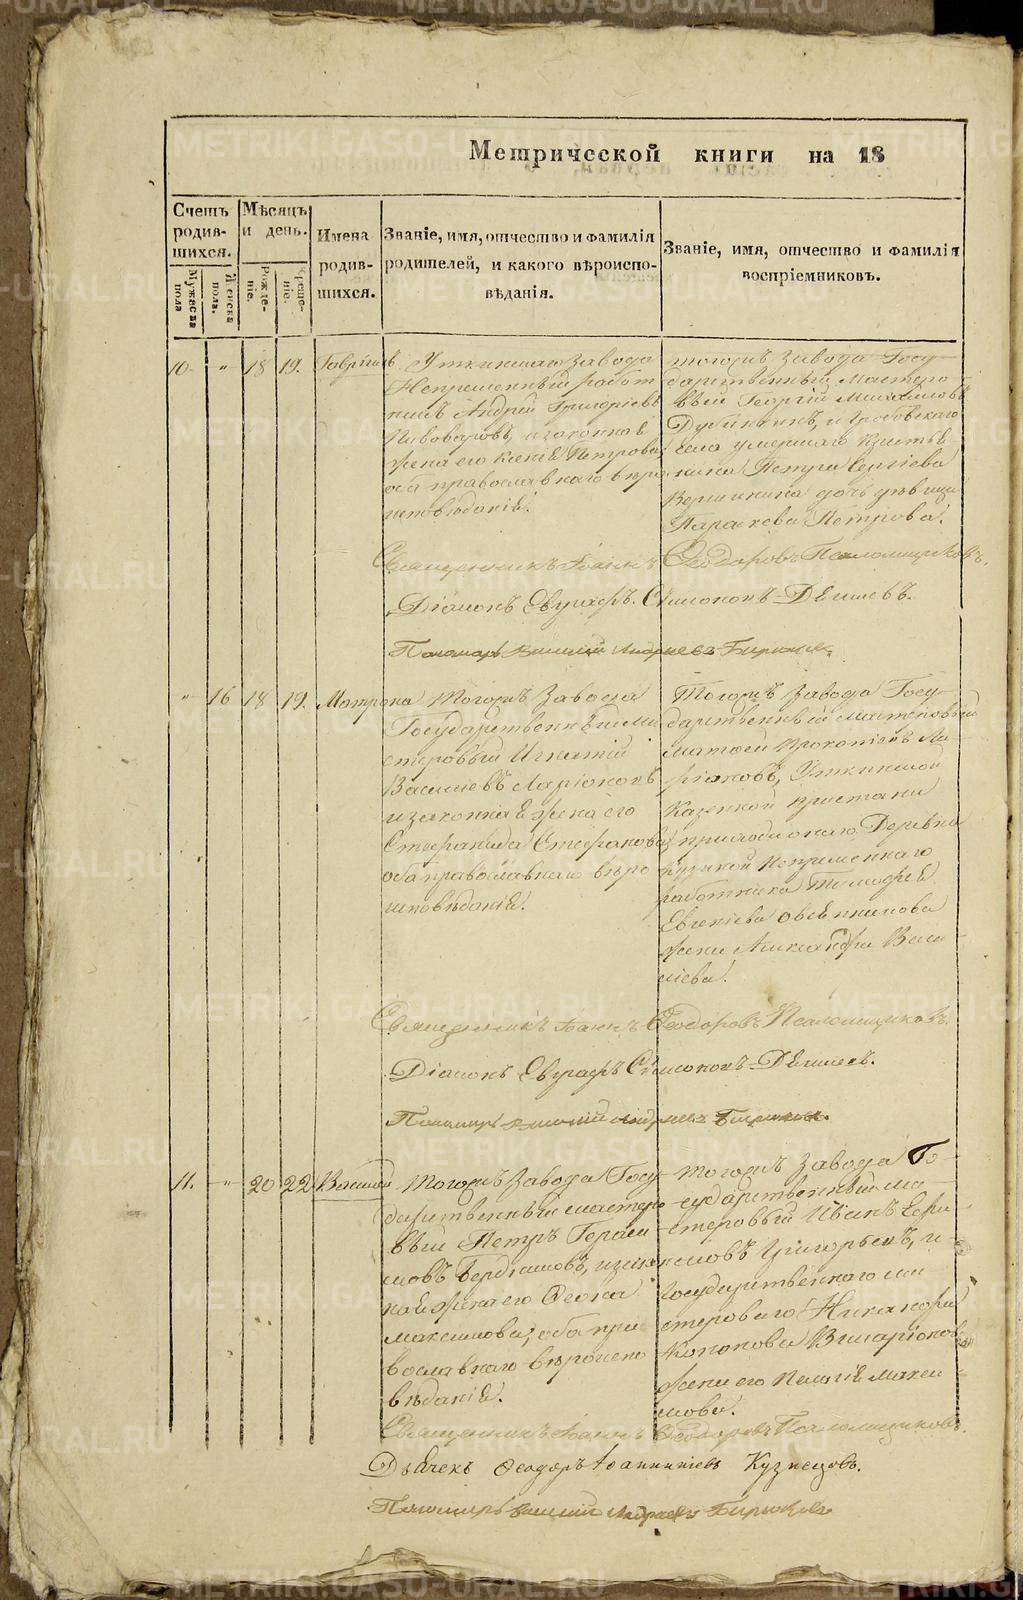 Метрической книги на 18
Счетъ родив-шихся.
Мужеска пола
Женска пола.
Мѣсяцъ и день.
Рожде-ніе.
Креще-ніе.
Имена родив-шихся.
Званіе, имя, отчество и фамилія
родителей, и какого вѣроиспо-
вѣданія.
Званіе, имя, отчество и фамилія
воспріемниковъ.
10. " 18 19. Гавріилъ
Уткинскаго завода
Непремѣнный работ
никъ Андрей Григоріевъ
Пивоваровъ, и законная
жена его Ксенія Петрова
оба православнаго вѣро
исповѣданія.
тогожъ завода Госу
дарственный мастеро
вый Георгій Михайловъ
Дубининъ, и Гробовскаго
села умершаго крестья
нина Петра Сергіева
Вершинина дочь дѣвица
Параскева Петрова.
Священникъ Іоаннъ Ѳеодоровъ Псаломщиковъ.
Діаконъ Евграфъ Симоновъ
Пономарь Василій Андреевъ Бирюковъ.
" 16 18 19. Матрона
Тогожъ завода
Государственный ма
стеровый Игнатій
Васильевъ Ларіоновъ
и законная жена его
Степанида Стефанова
оба православнаго вѣро
исповѣданія.
Тогожъ завода Госу
дарственный мастеровый
Матвей Прокопіевъ Ла
ріоновъ, Уткинской
Казенной пристани
приходскаго Деревни
Кузиной Непремѣннаго
работника Тимофея
Евгеніева Овсянникова
жена Александра Васи
ліева.
Священникъ Іоаннъ Ѳеодоровъ Псаломщиковъ.
Діаконъ Евграфъ Симоновъ
Пономарь Василій Андреевъ Бирюковъ.
11. " 20 22 Василій
Тогожъ завода Госу
дарственный мастеро
вый Петръ Гераси
мовъ Бердниковъ, и закон
ная жена его Ѳеона
Максимова, оба пра
вославнаго вѣроиспо
вѣданія.
Тогожъ завода Го-
сударственный ма
стеровый Иванъ Ефи
мовъ Григорьевъ, и
Государственнаго ма
стероваго Никанора
Кононова Виларіонова
жена его Пелагія Макси
мова.
Священникъ Іоаннъ Ѳеодоровъ Псаломщиковъ.
Дьячекъ Ѳеодоръ Іоанникіевъ Кузнецовъ.
Пономарь Василій Андреевъ Бирюковъ
METRIKI.GASO-URAL.RU